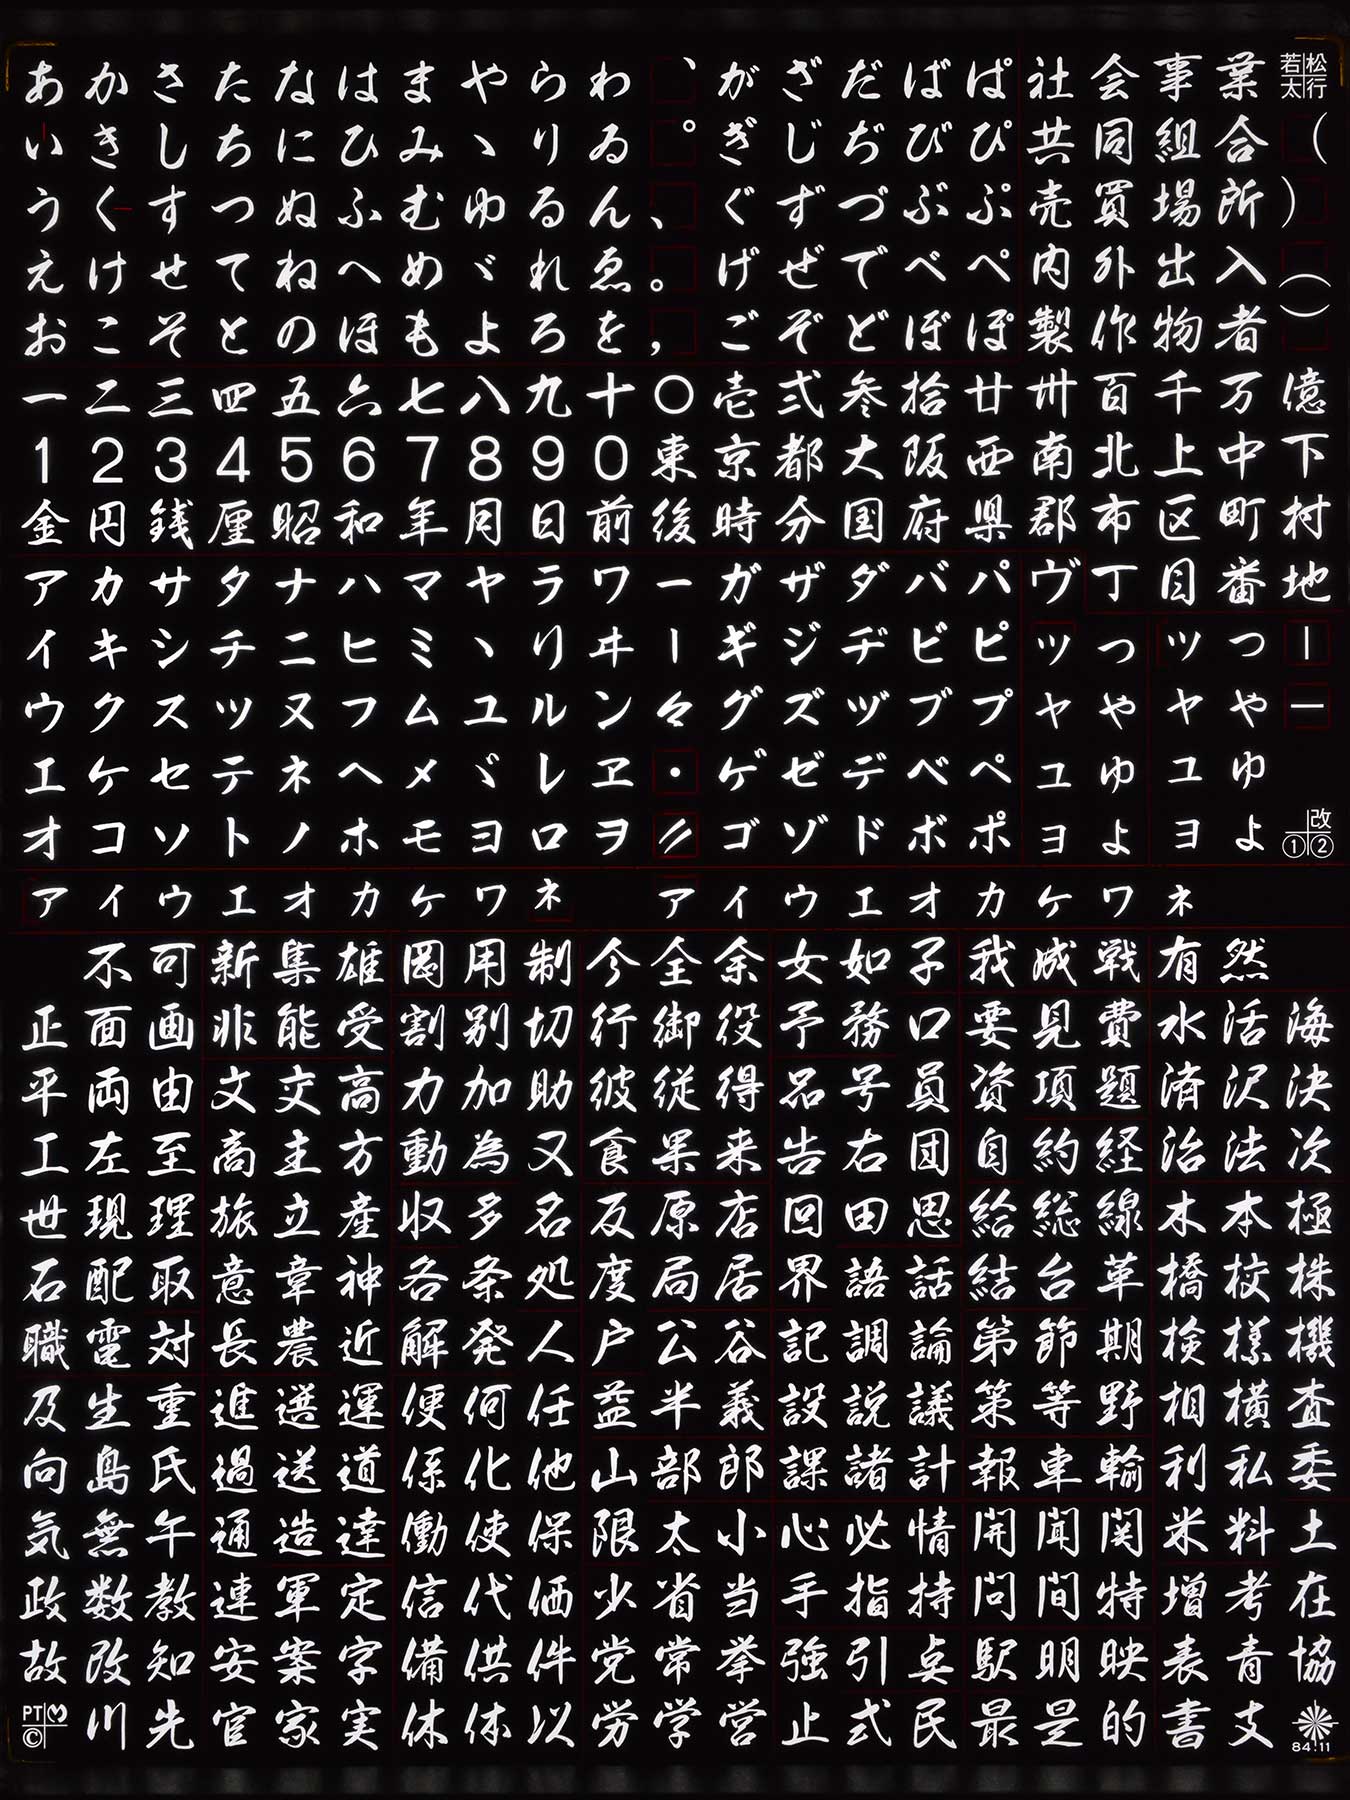 あかさたなはまやらわ、がざだばぱ社会事業 若松太行
いきしちにひみヽりゐ。ぎじぢびぴ共同組合（
うくすつぬふむゆるん、ぐずづぶぷ売買場所）
えけせてねへめゞれゑ。げぜでべぺ内外出入（
おこそとのほもよろを，ごぞどぼぽ製作物者）
一二三四五六七八九十〇壱弐参拾廿卅百千万億
1234567890東京都大阪西南北上中下
金円銭厘昭和年月日前後時分国府県郡市区町村
アカサタナハマヤラワーガザダバパヴ丁目番地
イキシチニヒミヽリヰーギジヂビピッっッっー
ウクスツヌフムユルン々グズヅブプャゃャゃー
エケセテネヘメヾレヱ・ゲゼデベペュゅュゅ
オコソトノホモヨロヲ〃ゴゾドボポョょョょ 改①②
ァィゥェォヵヶヮネ ァィゥェォヵヶヮネ
不可新集雄岡用制今全余女如子我成戦有然
正面画非能受割別切行御役予務口要見費水活海
平両由文交高力加助彼従得品号員資項題済沢決
工左至商主方動為又食果来告右団自約経治法次
世現理旅立産収多名反原店回田思給総線木本極
石配取意章神各条処度局居界語話結台革橋校株
職電対長農近解発人戸公谷記調論第節期検様機
及生重進選運便何任益半義設説議策等野相横査
向島氏過送道係化他山部郎課諸計報車輸利私委
気無午通造達働使保限太小心必情開聞関米料土
政数教連軍定信代価少省当手指持問間特増考在
故改知安案字備供件党常挙強引点駅明映表青協
PT © 川先官家実休体以労学営止式民最是的書支 84.11